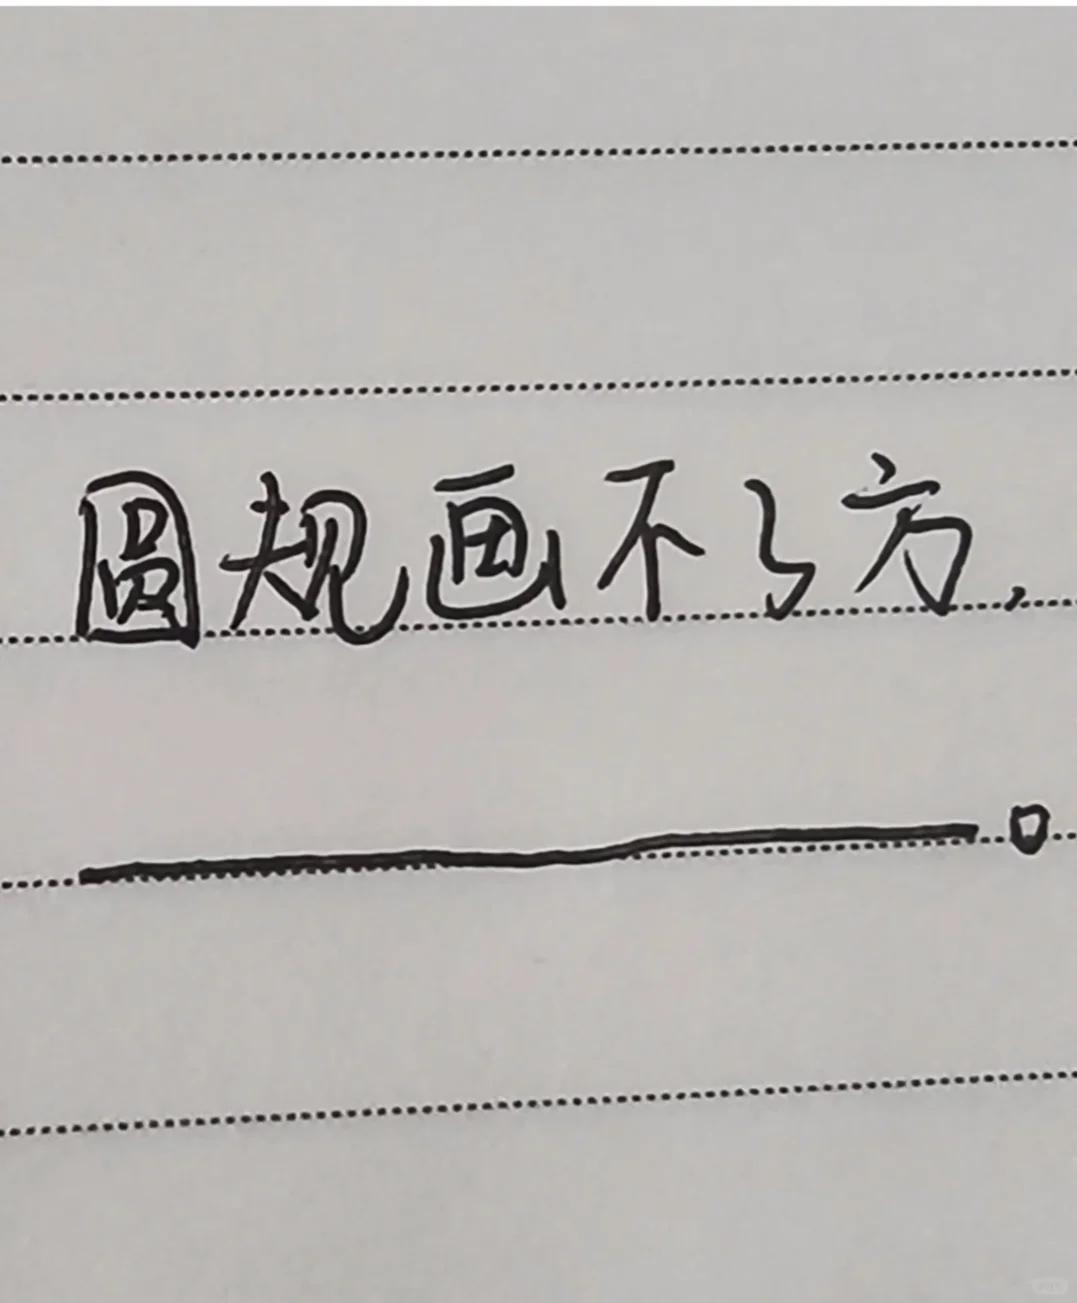 圆规画不了方,
________。